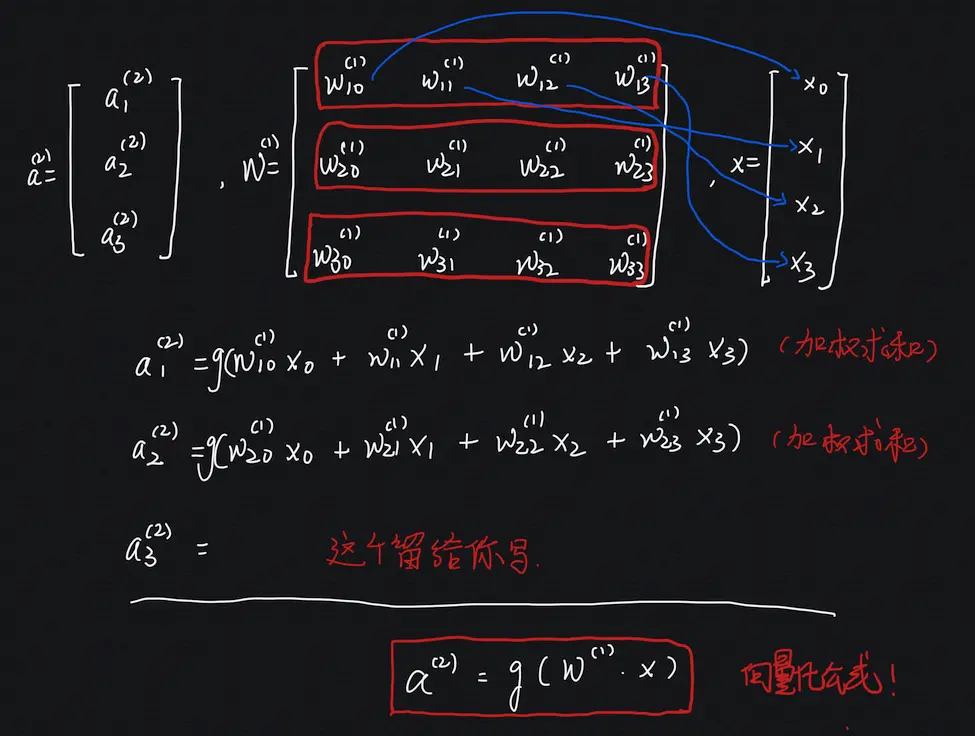 a⁽²⁾ = [a₁⁽²⁾ a₂⁽²⁾ a₃⁽²⁾] , W⁽¹⁾ = [w₁₀⁽¹⁾ w₁₁⁽¹⁾ w₁₂⁽¹⁾ w₁₃⁽¹⁾
w₂₀⁽¹⁾ w₂₁⁽¹⁾ w₂₂⁽¹⁾ w₂₃⁽¹⁾
w₃₀⁽¹⁾ w₃₁⁽¹⁾ w₃₂⁽¹⁾ w₃₃⁽¹⁾] , x = [x₀ x₁ x₂ x₃]
a₁⁽²⁾ = g(w₁₀⁽¹⁾ x₀ + w₁₁⁽¹⁾ x₁ + w₁₂⁽¹⁾ x₂ + w₁₃⁽¹⁾ x₃) (加权求和)
a₂⁽²⁾ = g(w₂₀⁽¹⁾ x₀ + w₂₁⁽¹⁾ x₁ + w₂₂⁽¹⁾ x₂ + w₂₃⁽¹⁾ x₃) (加权求和)
a₃⁽²⁾ = 这个留给你写.
a⁽²⁾ = g(W⁽¹⁾ · x) 向量化公式!